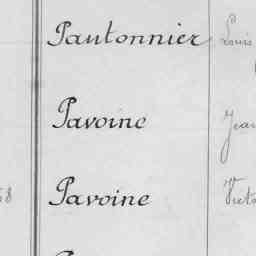 Pautonnier Louis
Pavoine Jean
Pavoine